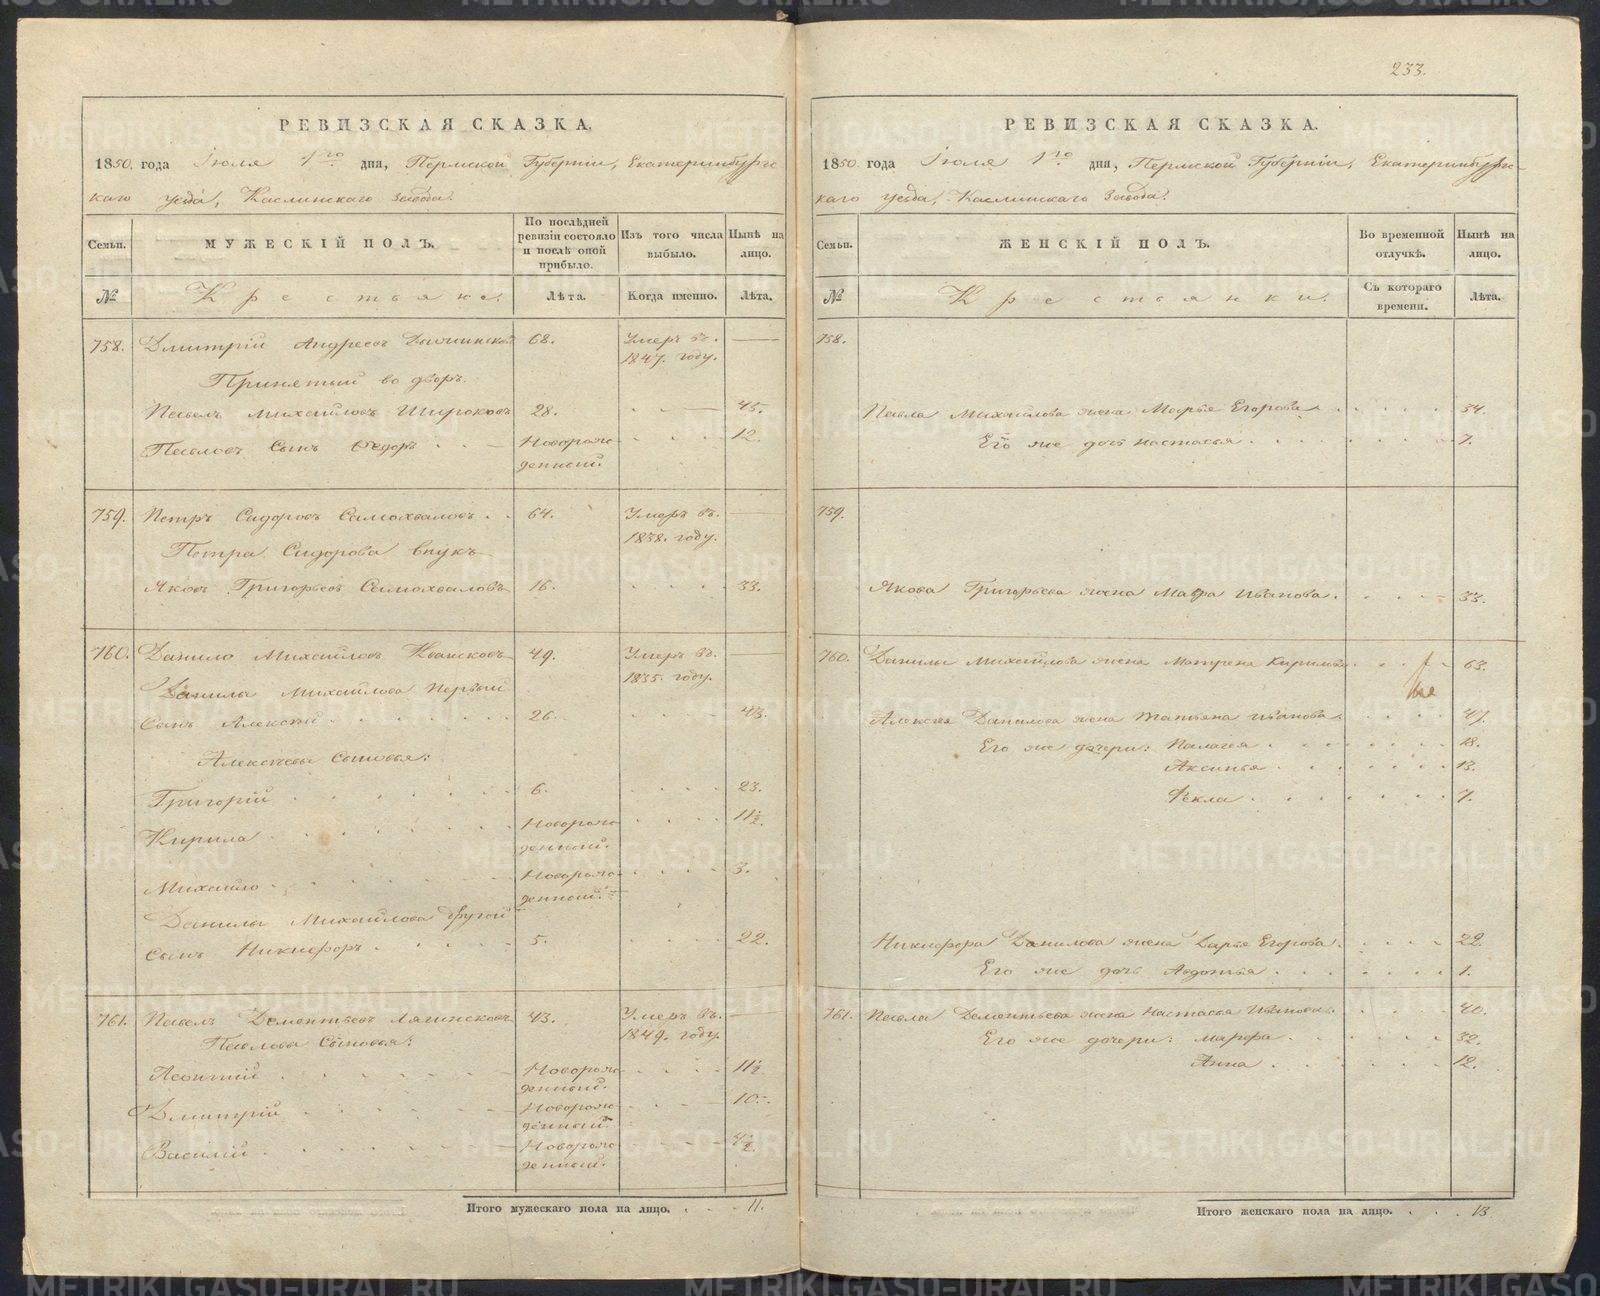 233.
РЕВИЗСКАЯ СКАЗКА.
1850. года Іюля 1го дня, Пермской Губерніи, Екатеринбургс-
каго уезда, Каслинскаго Завода.
Семьи.
МУЖЕСКІЙ ПОЛЪ.
По послѣдней ревизіи состояло и послѣ оной прибыло.
Изъ того числа выбыло.
Нынѣ на лицо.
№
Крестьяне.
Лѣта.
Когда именно.
Лѣта.
758. Дмитрій Андреевъ 68. Умеръ въ. —
1847. году.
Принятый во дворъ.
Павелъ Михайловъ Широковъ 28. 45.
Павловъ Сынъ Федоръ Новорож- 12.
денный.
759. Петръ Сидоровъ Самохваловъ 64. Умеръ въ. —
1838. году.
Петра Сидорова внукъ
Яковъ Григорьевъ Самохваловъ 16. 33.
760. Данило Михайловъ Квасковъ 49. Умеръ въ. —
1835. году.
Данилы Михайлова первый
Сынъ Алексѣй 26. 43.
Алексѣевы Сыновья:
Григорій 6. 23.
Кирила Новорож- 11½.
денный.
Михайло Новорож- 3.
денный.
Данилы Михайлова другой
сынъ Никифоръ 5. 22.
761. Павелъ Дементьевъ Лягинсковъ 43. Умеръ въ. —
1849. году.
Павлова Сыновья:
Леонтій Новорож- 11½
денный.
Дмитрій Новорож- 10.
денный.
Василій Новорож- 4½.
денный.
Итого мужескаго пола на лицо. 11.
РЕВИЗСКАЯ СКАЗКА.
1850. года Іюля 1го дня, Пермской Губерніи, Екатеринбургс-
каго уезда, Каслинскаго Завода.
Семьи.
ЖЕНСКІЙ ПОЛЪ.
Во временной отлучкѣ.
Нынѣ на лицо.
№
Крестьянки.
Съ котораго времени.
Лѣта.
758.
Павла Михайлова жена Марья Егорова 34.
Его же дочь Настасья 7.
759.
Якова Григорьева жена Мавра Иванова. 33.
760. Данилы Михайлова жена Матрена Кирилова 63.
Алексѣя Данилова жена Татьяна Иванова 47.
Его же дочери: Палагея 18.
Аксинья 13.
Фекла 7.
Никифора Данилова жена Дарья Егорова. 22.
Его же дочь Авдотья 1.
761. Павла Дементьева жена Настасья Иванова. 40.
Его же дочери: Марфа 32.
Анна 12.
Итого женскаго пола на лицо. 13
METRIKI.GASO-URAL.RU